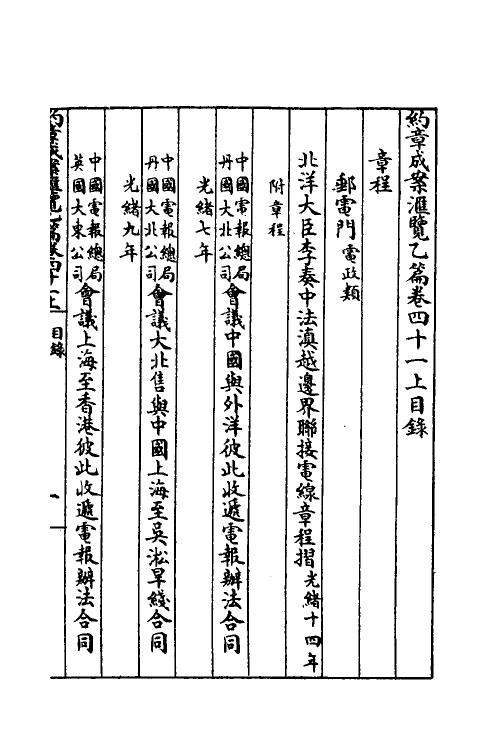 約章成案滙覽乙篇卷四十一上目錄
章程
郵電門電政類
北洋大臣李奏中法滇越邊界聯接電線章程摺光緒十四年
附章程
中國電報總局
丹國大北公司會議中國與外洋彼此收遞電報辦法合同
光緒七年
中國電報總局
丹國大北公司會議大北售與中國上海至吳淞旱綫合同
光緒九年
中國電報總局
英國大東公司會議上海至香港彼此收遞電報辦法合同
約章成案滙覽乙篇卷四十一上 目錄 一